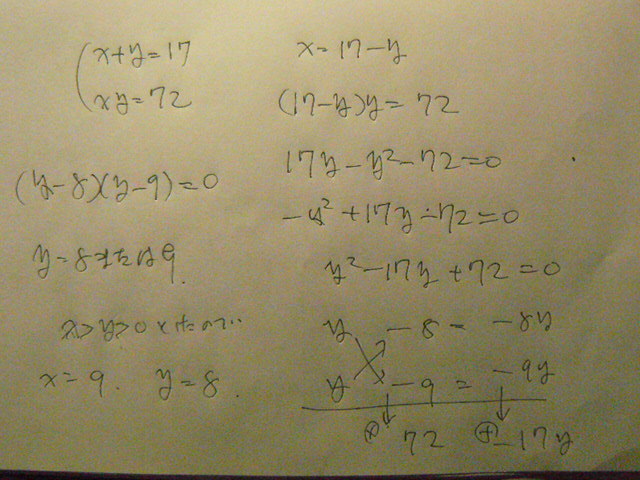 x+y=17
xy=72
x=17-y
(17-y)y=72
17y-y²-72=0
-y²+17y-72=0
y²-17y+72=0
y -8= -8y
y -9= -9y
⊗ 72 ⊕ -17y
(y-8)(y-9)=0
y=8または9.
x>y>0
x=9. y=8.